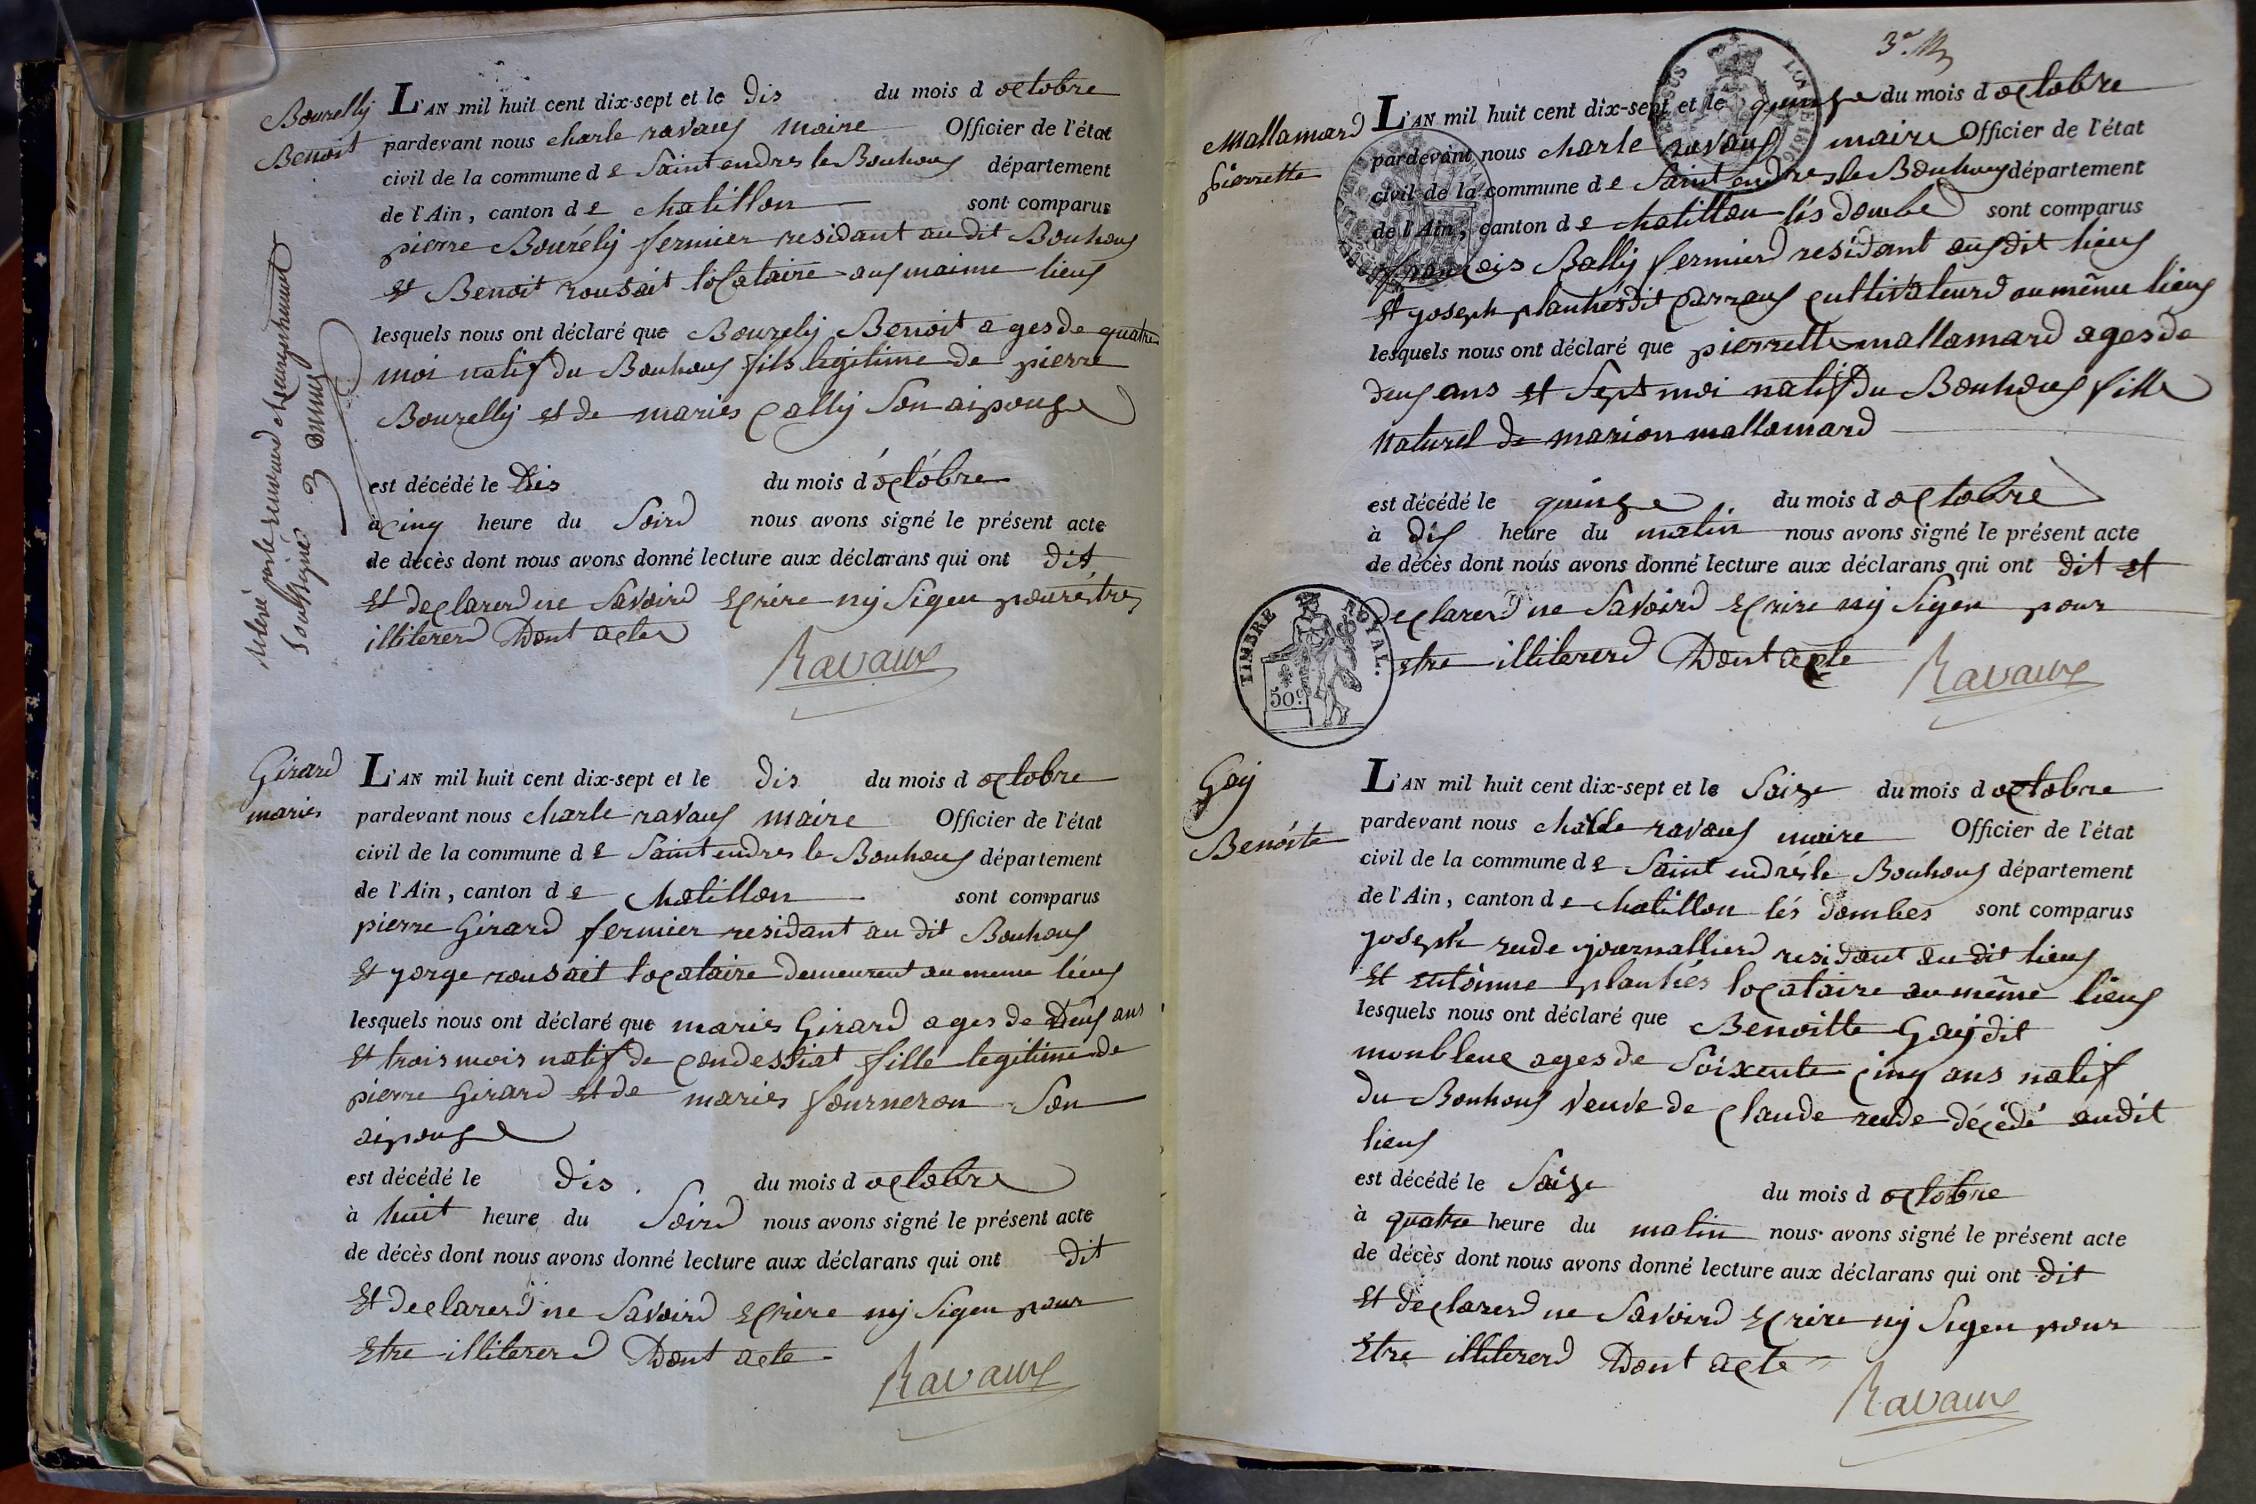 Bourellij
Benoit
L'AN mil huit cent dix-sept et le dis du mois d octobre
pardevant nous charle ravaux maire Officier de l'état
civil de la commune de Saint endres le Bouhoux département
de l'Ain, canton de chatillon sont comparus
pierre Bourélij fermier residant au dit Bouhoux
et Benoit rousait locataire aux maime lieux
lesquels nous ont déclaré que Bourelij Benoit ages de quatre
moi natif du Bouhoux fils legitime de pierre
Bourellij et de maries callij Son aipouze
est décédé le dis du mois d'octobre
à cinq heure du Soird nous avons signé le présent acte
de décès dont nous avons donné lecture aux déclarans qui ont dit
et declarerd ne Savoird Ecrire nij Signu pour étre
illitererd Dont actes
Ravaux
soussigné
Girard
maries
L'AN mil huit cent dix-sept et le dis du mois d octobre
pardevant nous charle ravaux maire Officier de l'état
civil de la commune de Saint endres le Bouhoux département
de l'Ain, canton de chatillon sont comparus
pierre Girard fermier residant au dit Bouhoux
et yorge rousait locataire demeurent au meme lieux
lesquels nous ont déclaré que maries Girard ages de Deux ans
et trois mois natif de condessiat fille legitime de
pierre Girard et de maries fourneron Son
aipouze
est décédé le dis du mois d octobre
à huit heure du Soird nous avons signé le présent acte
de décès dont nous avons donné lecture aux déclarans qui ont dit
et declarerd ne Savoird Ecrire nij Signu pour
Etre illitererd Dont acte
Ravaux
Mallamard
pierrette
L'AN mil huit cent dix-sept et le quinze du mois d octobre
pardevant nous charle ravaux maire Officier de l'état
civil de la commune de Saint endres le Bouhoux département
de l'Ain, canton de chatillon lés dombe sont comparus
françois Ballij fermierd residant aux dit lieux
et yoseph plantiés dit carraux cultivateurd au même lieux
lesquels nous ont déclaré que pierrette mallamard ages de
deux ans et Sept moi natif du Bouhoux fille
naturel de marion mallamard
est décédé le quinze du mois d octobre
à dix heure du matin nous avons signé le présent acte
de décès dont nous avons donné lecture aux déclarans qui ont dit et
declarerd ne Savoird Ecrire nij Signu pour
etre illitererd Dont acte
TIMBRE ROYAL.
50c
Ravaux
Gaij
Benoite
L'AN mil huit cent dix-sept et le Saize du mois d octobre
pardevant nous charle ravaux maire Officier de l'état
civil de la commune de Saint endrés le Bouhoux département
de l'Ain, canton de chatillon lés dombes sont comparus
yoseph rude journallierd residant au dit lieux
et entoinne plantiés locataire au même lieux
lesquels nous ont déclaré que Benoitte Gaij dit
monbleue ages de Soixente cinq ans natif
du Bouhoux veuve de claude rude décédé audit
lieux
est décédé le Saize du mois d octobre
à quatre heure du matin nous avons signé le présent acte
de décès dont nous avons donné lecture aux déclarans qui ont dit
et declarerd ne Savoird Ecrire nij Signu pour
Etre illitererd Dont acte
Ravaux